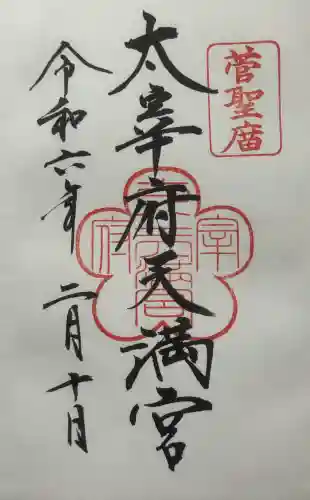 菅聖廟
太宰府天満宮
令和六年二月十月